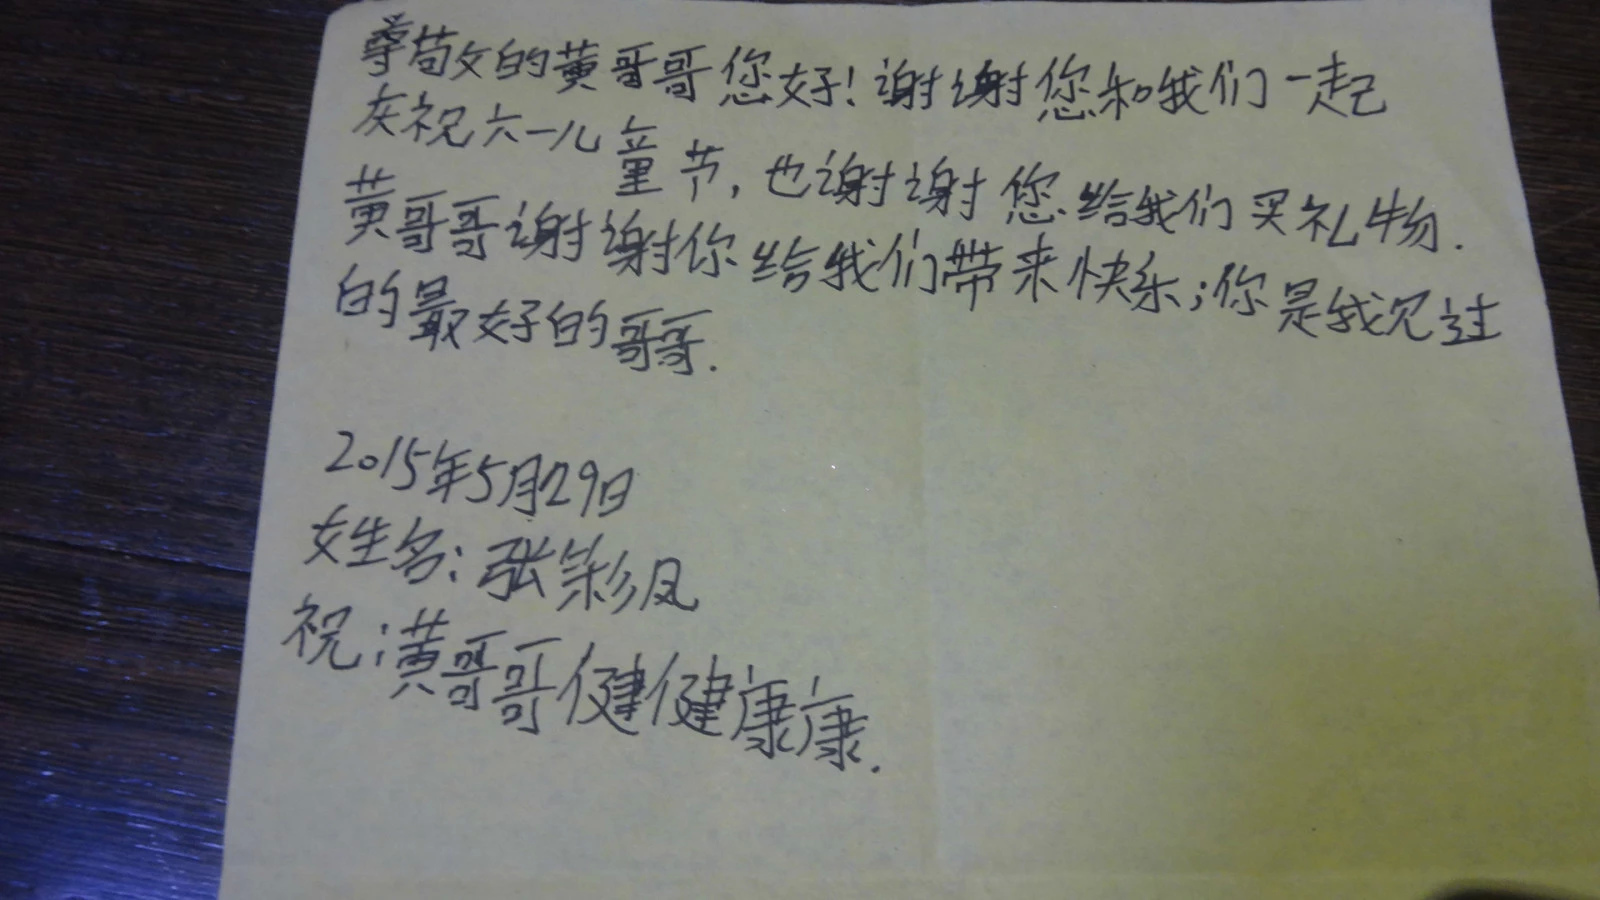 尊敬的黄哥哥您好!谢谢您和我们一起
庆祝六一儿童节,也谢谢您给我们买礼物.
黄哥哥谢谢你给我们带来快乐;你是我见过
的最好的哥哥.
2015年5月29日
女生名:张彩凤
祝:黄哥哥健健康康.